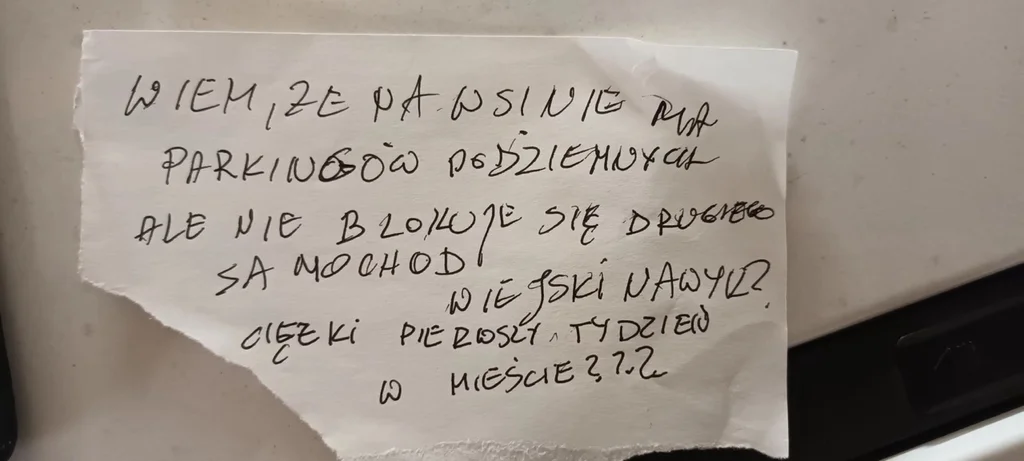 WIEM, ZE NA WSI NIE MA
PARKINGÓW PODZIEMNYCH
ALE NIE BLOKUJE SIĘ DRUGIEGO
SAMOCHOD
WIEJSKI NAWYK?
CIĘZKI PIERWSZY TYDZIEŃ
W MIEŚCIE????